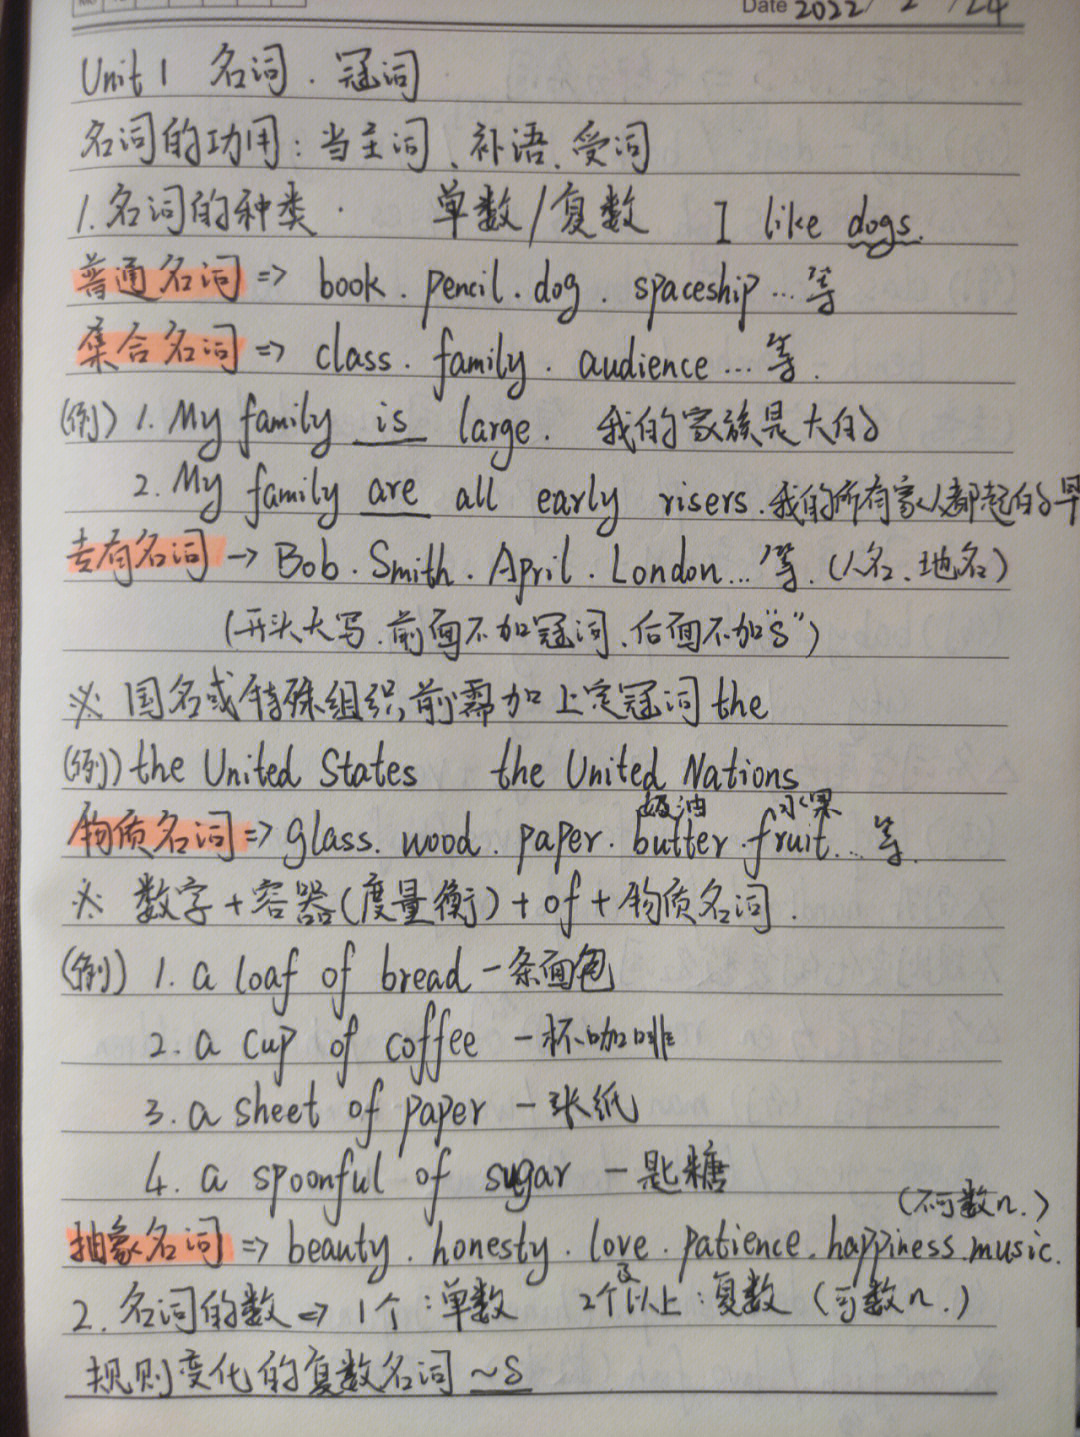 Date 2022/2/24
Unit 1 名词．冠词
名词的功用：当主词、补语、受词
1.名词的种类． 单数/复数 I like dogs.
普通名词 => book．pencil．dog．spaceship...等
集合名词 => class．family．audience...等．
(例) 1. My family is large． 我的家族是大的
2. My family are all early risers．我的所有家人都起的早
专有名词 → Bob．Smith．April．London...等．(人名、地名)
(开头大写．前面不加冠词．后面不加"s")
※ 国名或特殊组织,前需加上定冠词the
(例) the United States the United Nations
奶油 水果
物质名词 => glass．wood．paper．butter．fruit...等．
※ 数字+容器(度量衡)+of+物质名词．
(例) 1. a loaf of bread 一条面包
2. a cup of coffee 一杯咖啡
3. a sheet of paper 一张纸
4. a spoonful of sugar 一匙糖
(不可数n.)
抽象名词 => beauty．honesty．love．patience．happiness．music．
2. 名词的数 => 1个：单数 2个及以上：复数 (可数n.)
规则变化的复数名词 ~s